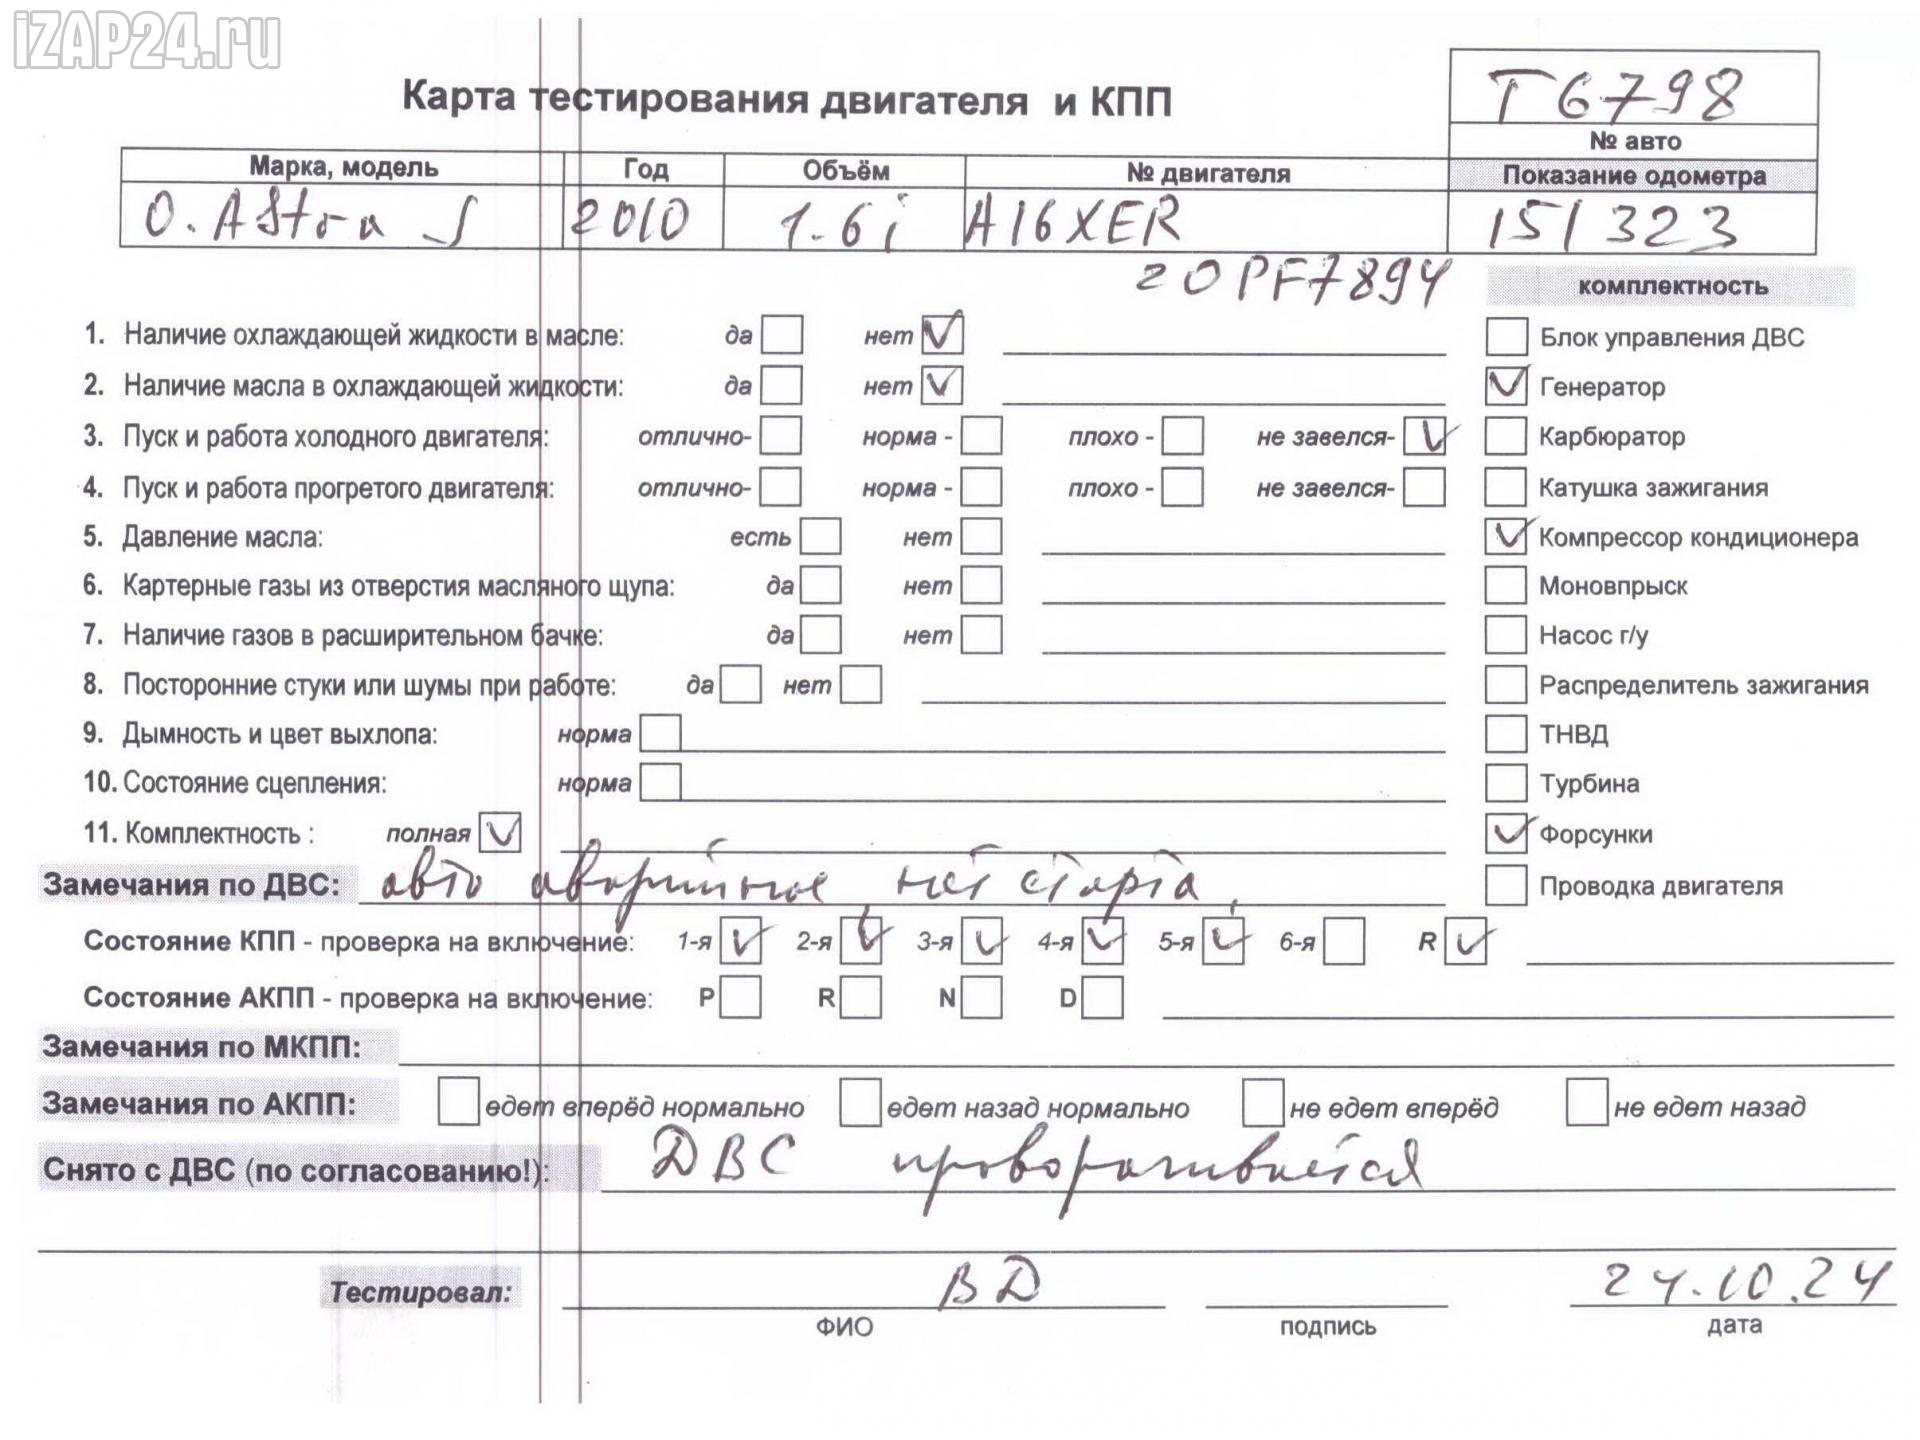 iZAP24.ru
Карта тестирования двигателя и КПП
T6798
№ авто
Марка, модель Год Объём № двигателя Показание одометра
O. Astra J 2010 1.6i A16XER 151323
20PF7894
комплектность
1. Наличие охлаждающей жидкости в масле: да нет Блок управления ДВС
2. Наличие масла в охлаждающей жидкости: да нет Генератор
3. Пуск и работа холодного двигателя: отлично- норма - плохо - не завелся- Карбюратор
4. Пуск и работа прогретого двигателя: отлично- норма - плохо - не завелся- Катушка зажигания
5. Давление масла: есть нет Компрессор кондиционера
6. Картерные газы из отверстия масляного щупа: да нет Моновпрыск
7. Наличие газов в расширительном бачке: да нет Насос г/у
8. Посторонние стуки или шумы при работе: да нет Распределитель зажигания
9. Дымность и цвет выхлопа: норма ТНВД
10. Состояние сцепления: норма Турбина
11. Комплектность : полная Форсунки
Замечания по ДВС: авто аварийное, нет старта, Проводка двигателя
Состояние КПП - проверка на включение: 1-я 2-я 3-я 4-я 5-я 6-я R
Состояние АКПП - проверка на включение: P R N D
Замечания по МКПП:
Замечания по АКПП: едет вперёд нормально едет назад нормально не едет вперёд не едет назад
Снято с ДВС (по согласованию!): ДВС проворачивается
Тестировал: ВД 24.10.24
ФИО подпись дата